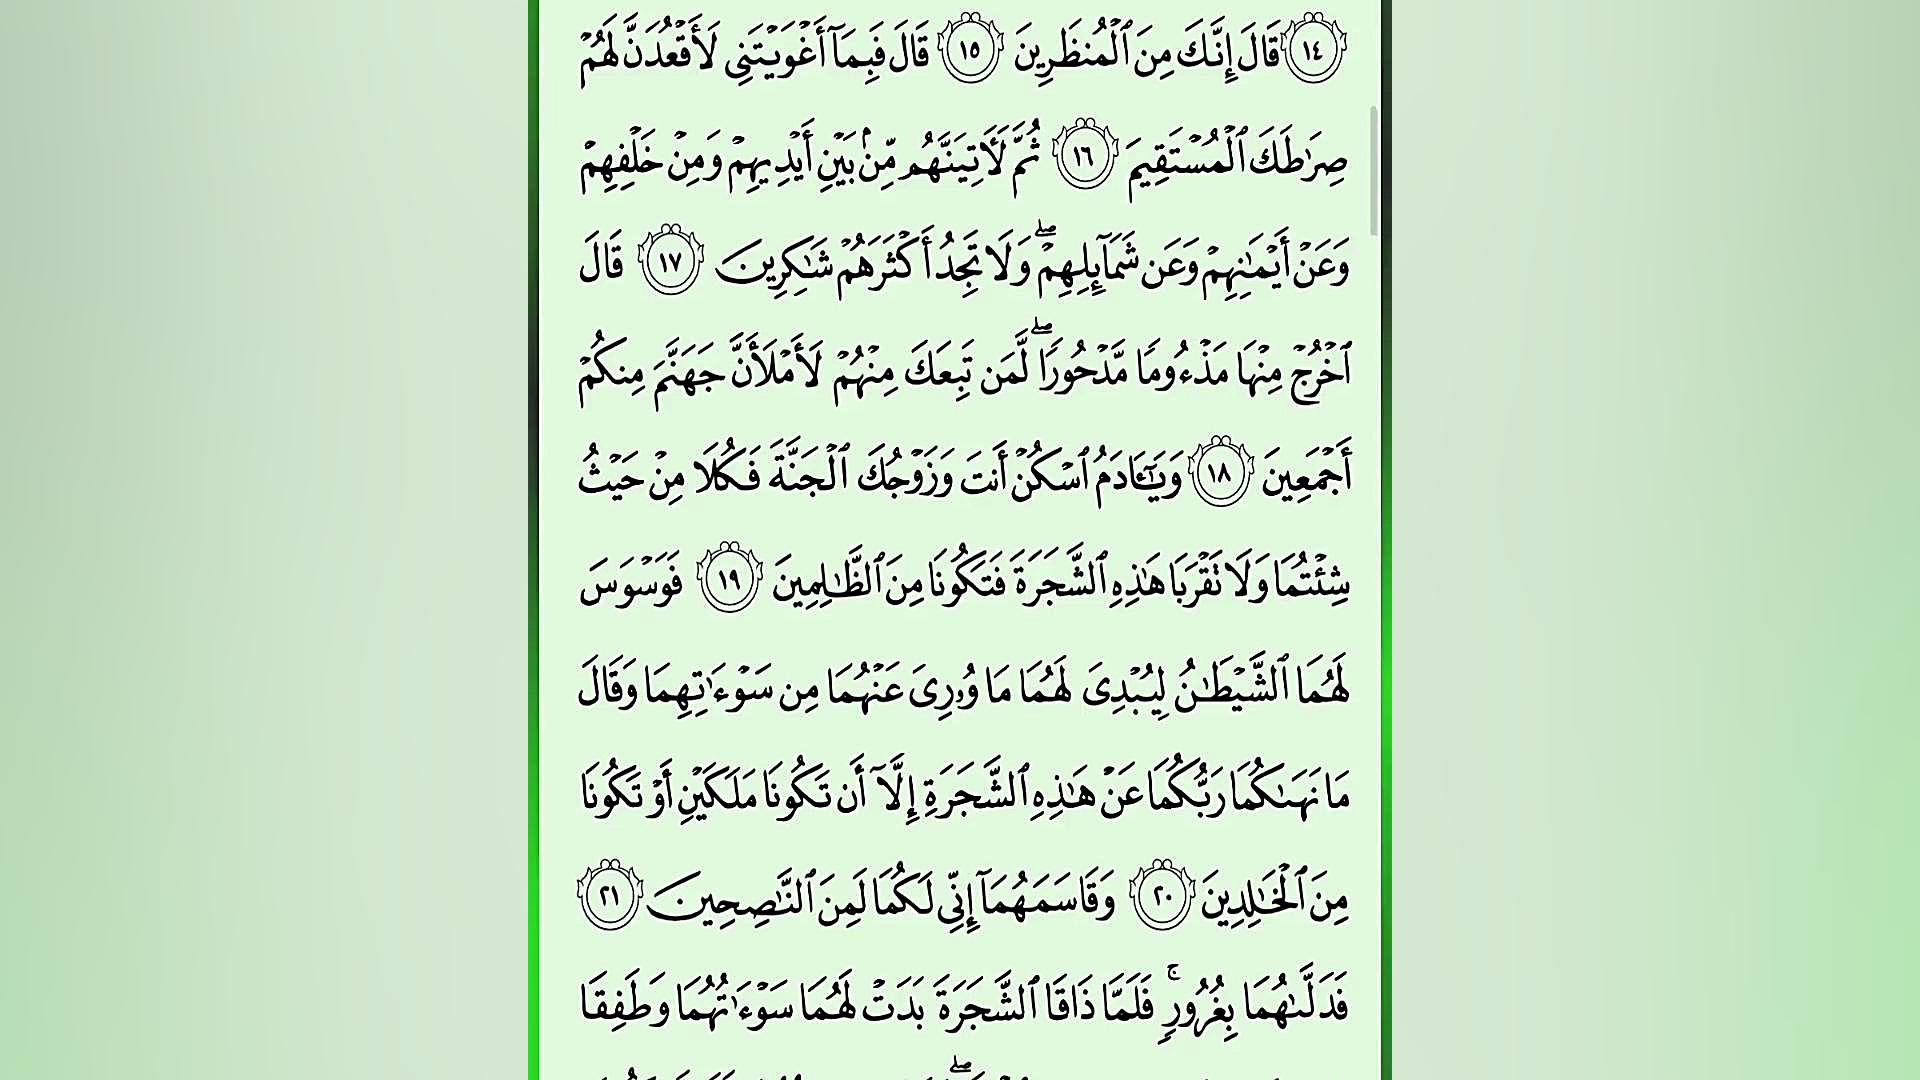 ١٤ قَالَ إِنَّكَ مِنَ ٱلْمُنظَرِينَ ١٥ قَالَ فَبِمَآ أَغْوَيْتَنِى لَأَقْعُدَنَّ لَهُمْ
صِرَٰطَكَ ٱلْمُسْتَقِيمَ ١٦ ثُمَّ لَـَٔاتِيَنَّهُم مِّنۢ بَيْنِ أَيْدِيهِمْ وَمِنْ خَلْفِهِمْ
وَعَنْ أَيْمَٰنِهِمْ وَعَن شَمَآئِلِهِمْ ۖ وَلَا تَجِدُ أَكْثَرَهُمْ شَٰكِرِينَ ١٧ قَالَ
ٱخْرُجْ مِنْهَا مَذْءُومًا مَّدْحُورًا ۖ لَّمَن تَبِعَكَ مِنْهُمْ لَأَمْلَأَنَّ جَهَنَّمَ مِنكُمْ
أَجْمَعِينَ ١٨ وَيَٰٓـَٔادَمُ ٱسْكُنْ أَنتَ وَزَوْجُكَ ٱلْجَنَّةَ فَكُلَا مِنْ حَيْثُ
شِئْتُمَا وَلَا تَقْرَبَا هَٰذِهِ ٱلشَّجَرَةَ فَتَكُونَا مِنَ ٱلظَّٰلِمِينَ ١٩ فَوَسْوَسَ
لَهُمَا ٱلشَّيْطَٰنُ لِيُبْدِىَ لَهُمَا مَا وُۥرِىَ عَنْهُمَا مِن سَوْءَٰتِهِمَا وَقَالَ
مَا نَهَىٰكُمَا رَبُّكُمَا عَنْ هَٰذِهِ ٱلشَّجَرَةِ إِلَّآ أَن تَكُونَا مَلَكَيْنِ أَوْ تَكُونَا
مِنَ ٱلْخَٰلِدِينَ ٢٠ وَقَاسَمَهُمَآ إِنِّى لَكُمَا لَمِنَ ٱلنَّٰصِحِينَ ٢١
فَدَلَّىٰهُمَا بِغُرُورٍ ۚ فَلَمَّا ذَاقَا ٱلشَّجَرَةَ بَدَتْ لَهُمَا سَوْءَٰتُهُمَا وَطَفِقَا